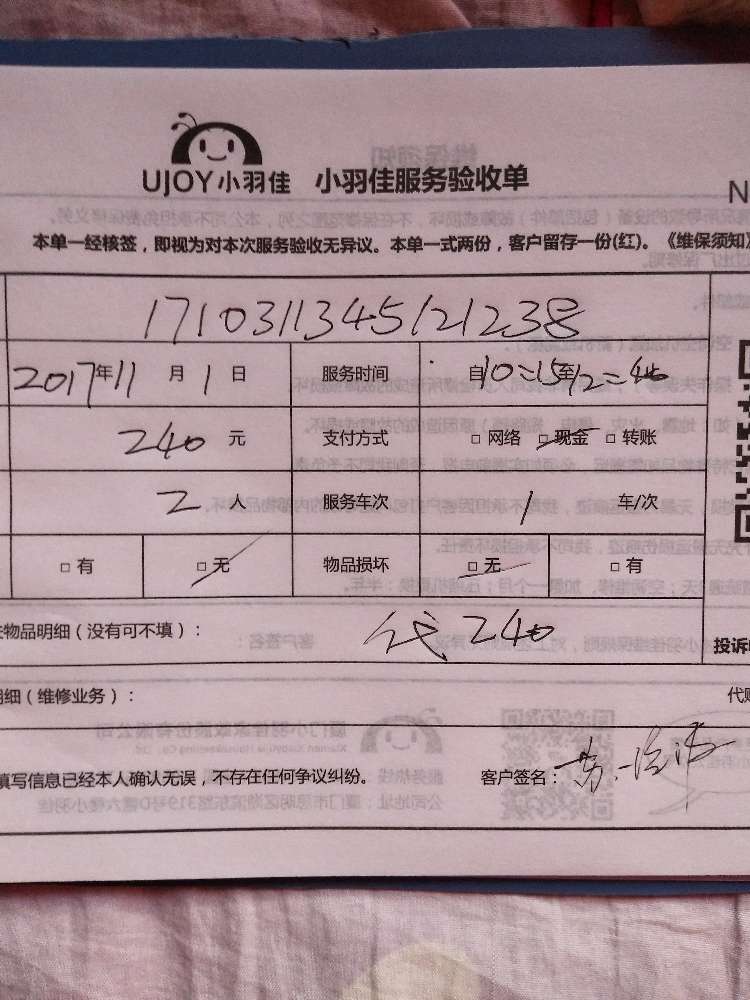 UJOY小羽佳 小羽佳服务验收单
N
本单一经核签，即视为对本次服务验收无异议。本单一式两份，客户留存一份(红)。《维保须知》
171031134512123号
2017年11月1日 服务时间 自10=15至12=46
240元 支付方式 □ 网络 □ 现金 □ 转账
2人 服务车次 1 车/次
□ 有 □ 无 物品损坏 □ 无 □ 有
物品明细（没有可不填）： 240
投诉
明细（维修业务）： 代购
填写信息已经本人确认无误，不存在任何争议纠纷。 客户签名：